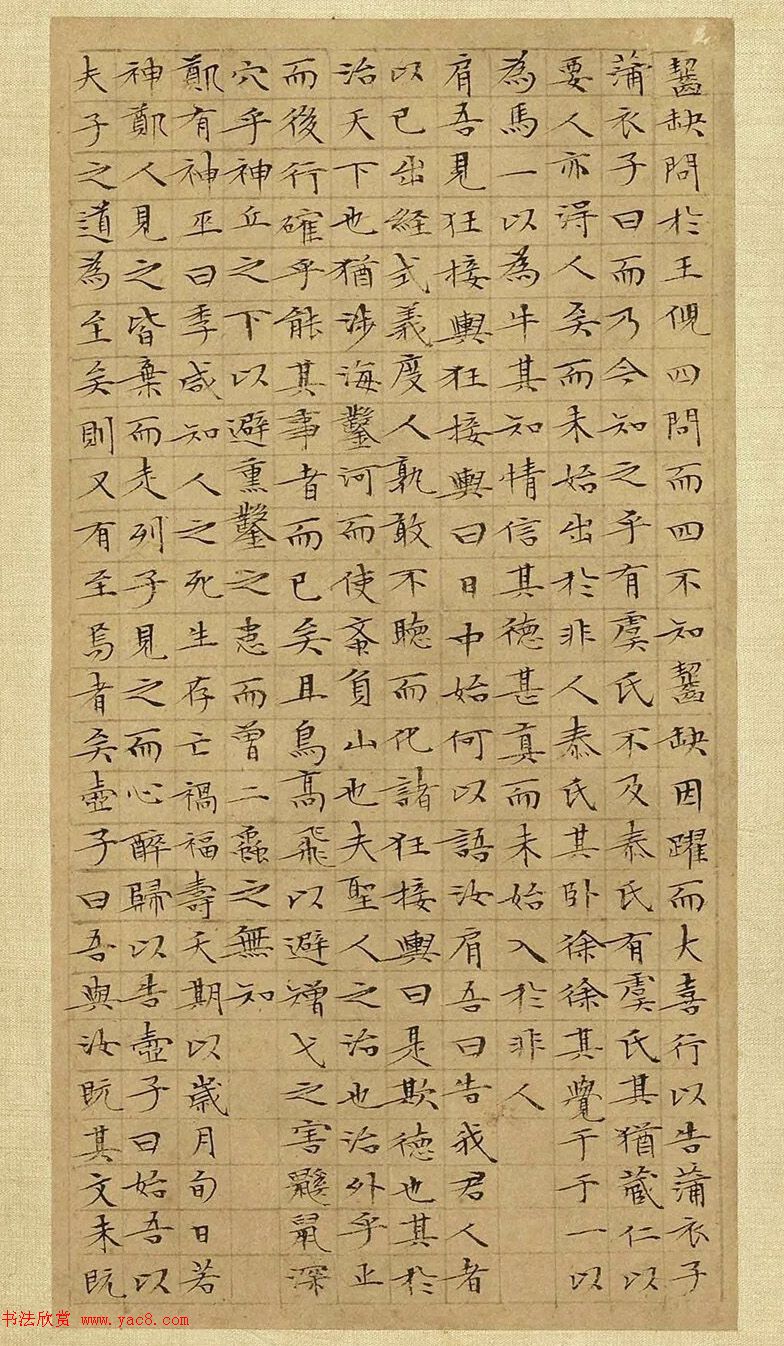 齧缺問於王倪四問而四不知齧缺因躍而大喜行以告蒲衣子
蒲衣子曰而乃今知之乎有虞氏不及泰氏有虞氏其猶藏仁以
要人亦淂人矣而未始出於非人泰氏其卧徐徐其覺于于一以
為馬一以為牛其知情信其德甚真而未始入於非人
肩吾見狂接輿狂接輿曰日中始何以語汝肩吾曰告我君人者
以已出経式義度人孰敢不聽而化諸狂接輿曰是欺德也其於
治天下也猶涉海鑿河而使蚉負山也夫聖人之治也治外乎止
而後行確乎能其事者而已矣且鳥高飛以避矰弋之害鼷鼠深
穴乎神丘之下以避熏鑿之患而曾二蟲之無知
鄭有神巫曰季咸知人之死生存亡禍福壽夭期以歲月旬日若
神鄭人見之皆棄而走列子見之而心醉歸以告壺子曰始吾以
夫子之道為至矣則又有至焉者矣壺子曰吾與汝既其文未既
书法欣赏 www.yac8.com